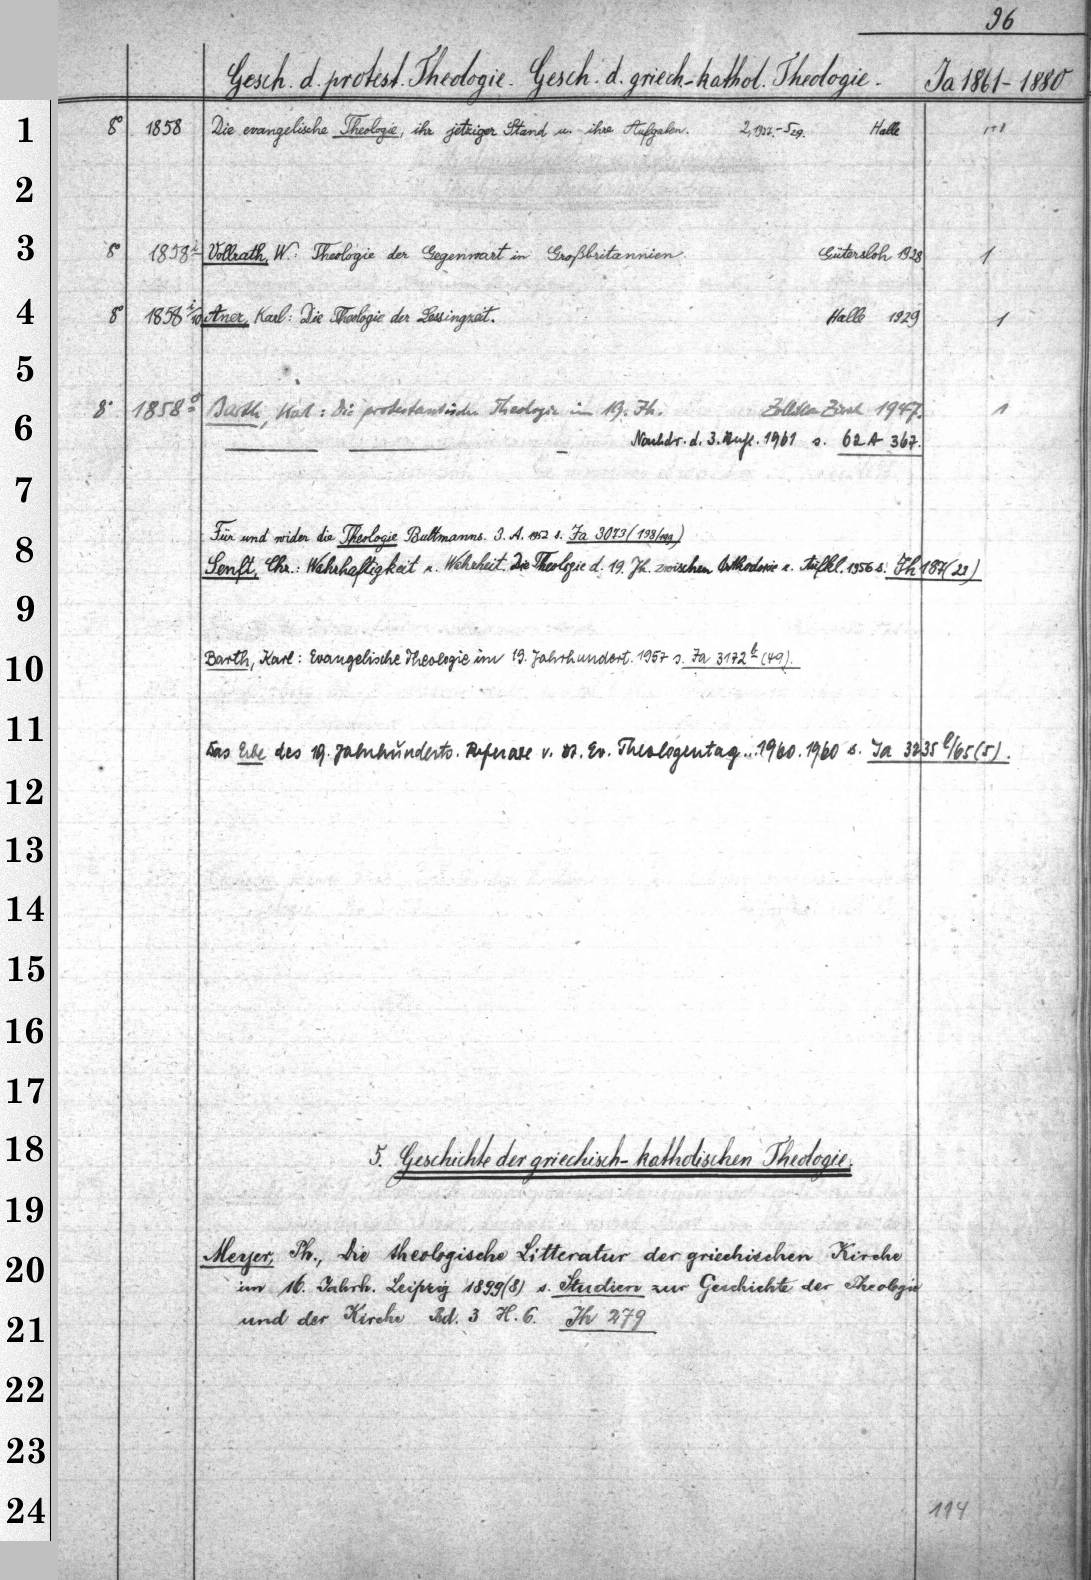 96
Gesch. d. protest. Theologie. Gesch. d. griech.-kathol. Theologie. Ja 1861-1880
1 8° 1858 Die evangelische Theologie, ihr jetziger Stand u. ihre Aufgaben. Halle
2
3 8° 1858 Vollrath, W.: Theologie der Gegenwart in Großbritannien. Gütersloh 1928 1
4 8° 1858 i/10 Aner, Karl: Die Theologie der Lessingzeit. Halle 1929 1
5
8° 1858 Barth, Karl: Die protestantische Theologie im 19. Jh. Zollikon Zürich 1947. 1
6
Nachdr. d. 3. Aufl. 1961 s. 62 A 367.
7
Für und wider die Theologie Bultmanns. 3. A. 1952 s. Ja 3073 (198/199)
8
Senft, Chr.: Wahrhaftigkeit u. Wahrheit. Die Theologie d. 19. Jh. zwischen Orthodoxie u. Aufkl. 1956 s. Jh 187 (23)
9
10 Barth, Karl: Evangelische Theologie im 19. Jahrhundert. 1957 s. Ja 3172 (49).
11
Das Erbe des 19. Jahrhunderts. Referate v. Ev. Theologentag... 1960. 1960 s. Ja 3235 /65 (5).
12
13
14
15
16
17
18 5. Geschichte der griechisch-katholischen Theologie.
19
Meyer, Ph., Die theologische Litteratur der griechischen Kirche
20
im 16. Jahrh. Leipzig 1899 (8) s. Studien zur Geschichte der Theologie
und der Kirche Bd. 3 H. 6. Jh 279
21
22
23
24 114